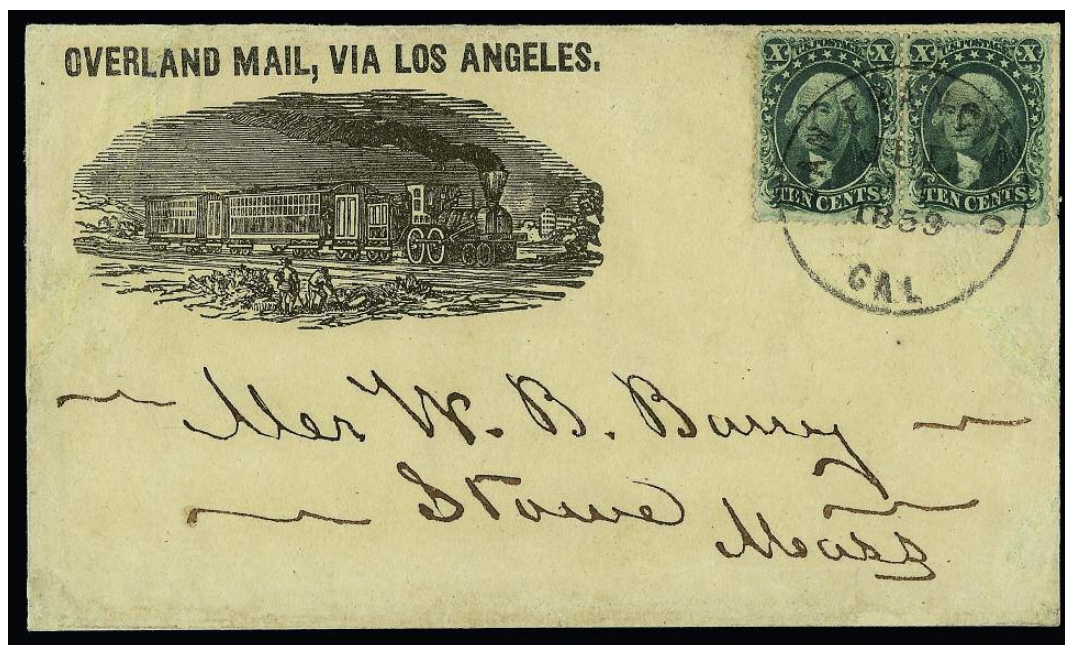 OVERLAND MAIL, VIA LOS ANGELES.
X U.S. POSTAGE X
TEN CENTS
X U.S. POSTAGE X
TEN CENTS
1859
CAL
W. B. Barry
Stowe
Mass